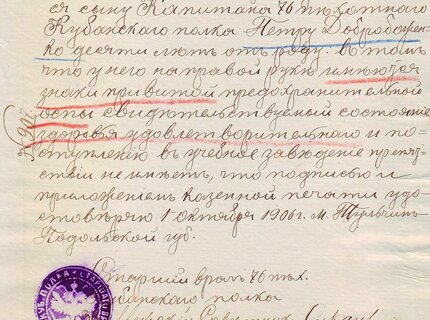 ся сыну Капитана 76 пѣхотнаго
Кубанскаго полка Петру Доброволь-
десяти лѣтъ отъ роду въ томъ
что у него на правой рукѣ имѣются
знаки привитой предохранительной
оспы свидѣтельствуемый состоянiе
здоровья удовлетворительнаго и по-
ступленiю въ учебное заведенiе препят-
ствiи не имѣетъ, что подписью и
приложенiемъ казенной печати удо-
стовѣряю 1 октября 1906 г. М. Тульчинъ
Подольской губ.
Старшiй врачъ 76 пѣх.
Кубанскаго полка
Совѣтникъ